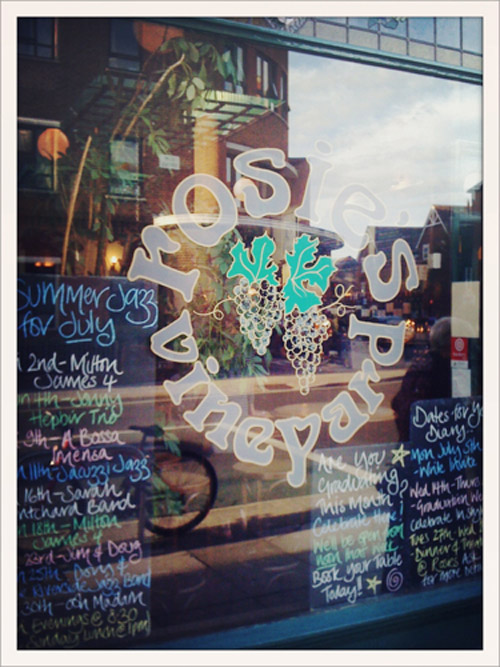 rosie's
vineyard
Summer Jazz
for July
2nd - Milton
James 4
Jonny
Hepbir Trio
A Bossa
Imensa
11th - Jacuzzi Jazz
16th - Sarah
Pritchard Band
18th - Milton
James 4
23rd - Jim & Doug
25th - Doug &
Riverside Jazz Band
30th - Ooh Madam
Evenings @ 8:30
Sunday Lunch @ 1pm
Are You
Graduating
This Month?
Celebrate Here!
We'll be open from
noon that week
Book your Table
Today!!
Dates for Yo
Diary
Mon July 5th
Wed 14th - Thurs
Graduation We
Celebrate in Style
Tues 27th - Wed
Dinner &
@ Rosie's Ask
for more details